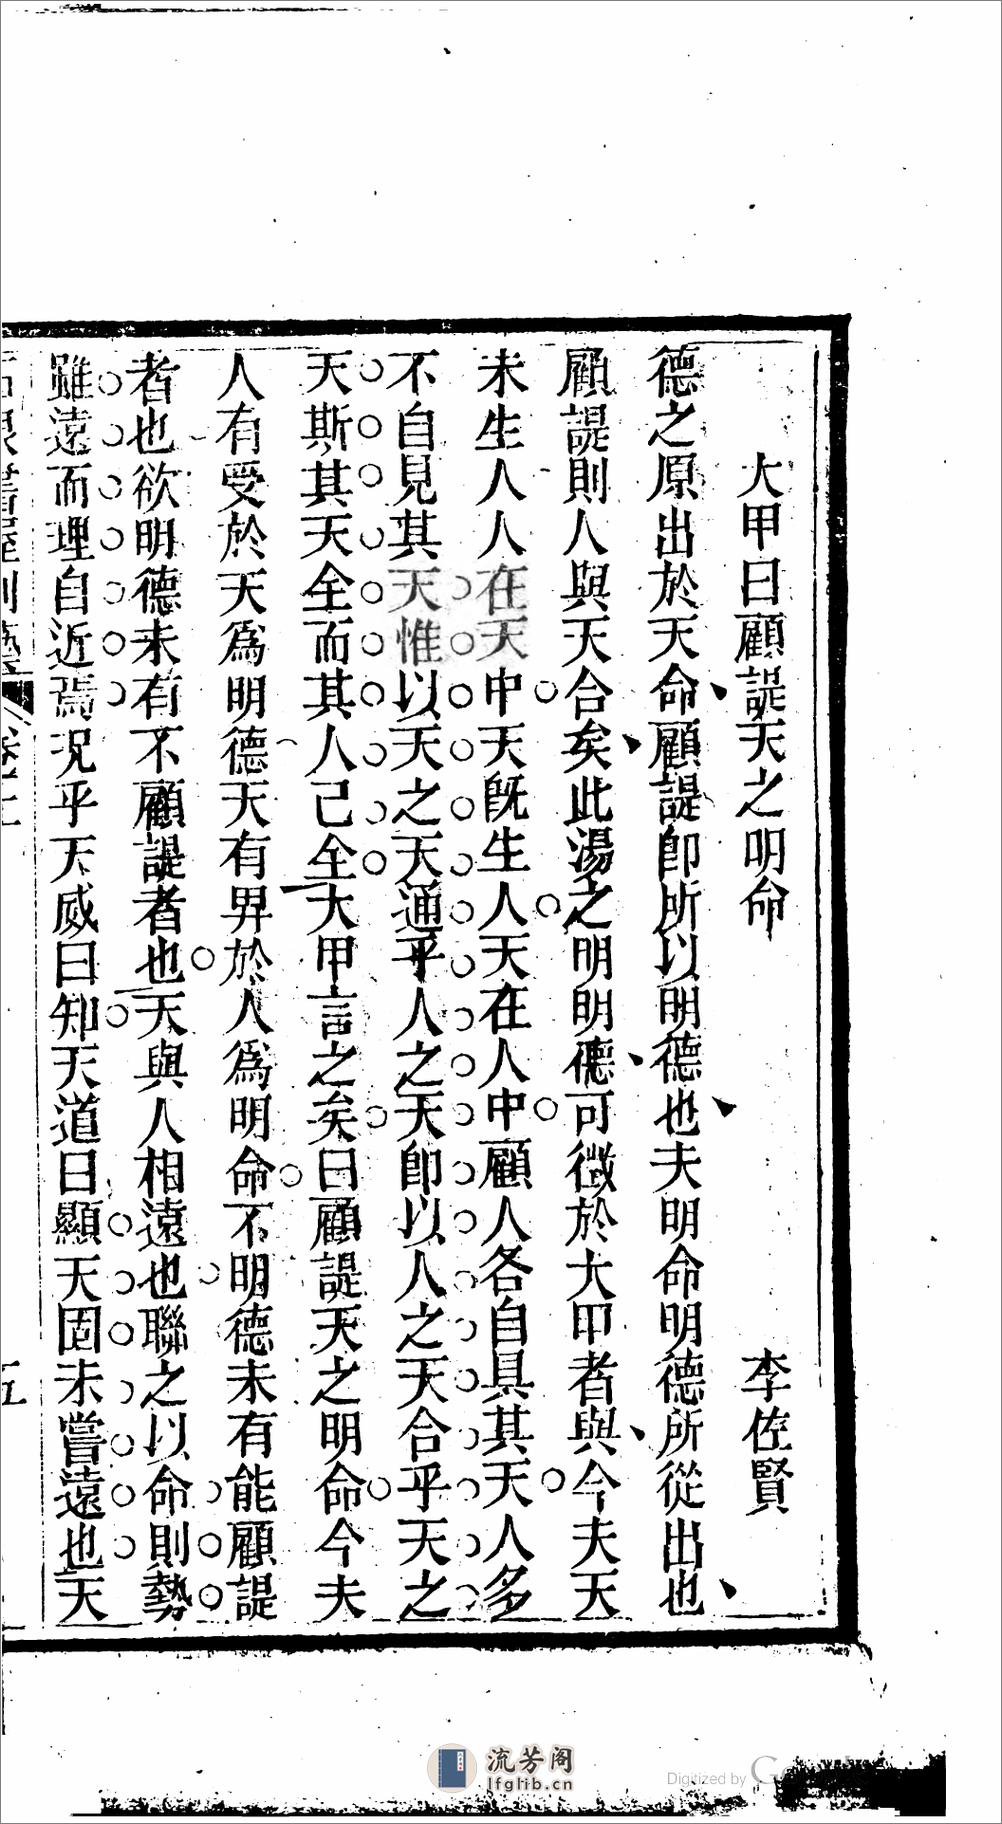 大甲曰顧諟天之明命 李佐賢
德之原出於天命顧諟卽所以明德也夫明命明德所從出也
顧諟則人與天合矣此湯之明明德可徵於大甲者與今夫天
未生人人在天中天旣生人天在人中顧人各自具其天人多
不自見其天惟以天之天通乎人之天卽以人之天合乎天之
天斯其天全而其人己全大甲言之矣曰顧諟天之明命今夫
人有受於天爲明德天有畀於人爲明命不明德未有能顧諟
者也欲明德未有不顧諟者也天與人相遠也聯之以命則勢
雖遠而理自近焉況乎天威曰知天道曰顯天固未嘗遠也天
石泉書屋制藝 卷上 五
流芳阁
lfglib.cn
Digitized by